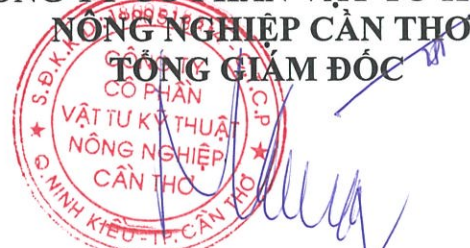 NÔNG NGHIỆP CẦN THƠ
TỔNG GIÁM ĐỐC
S.Đ.K.K.D
C.P
CÔNG TY
CỔ PHẦN
VẬT TƯ KỸ THUẬT
NÔNG NGHIỆP
CẦN THƠ
Q. NINH KIỀU - TP. CẦN THƠ